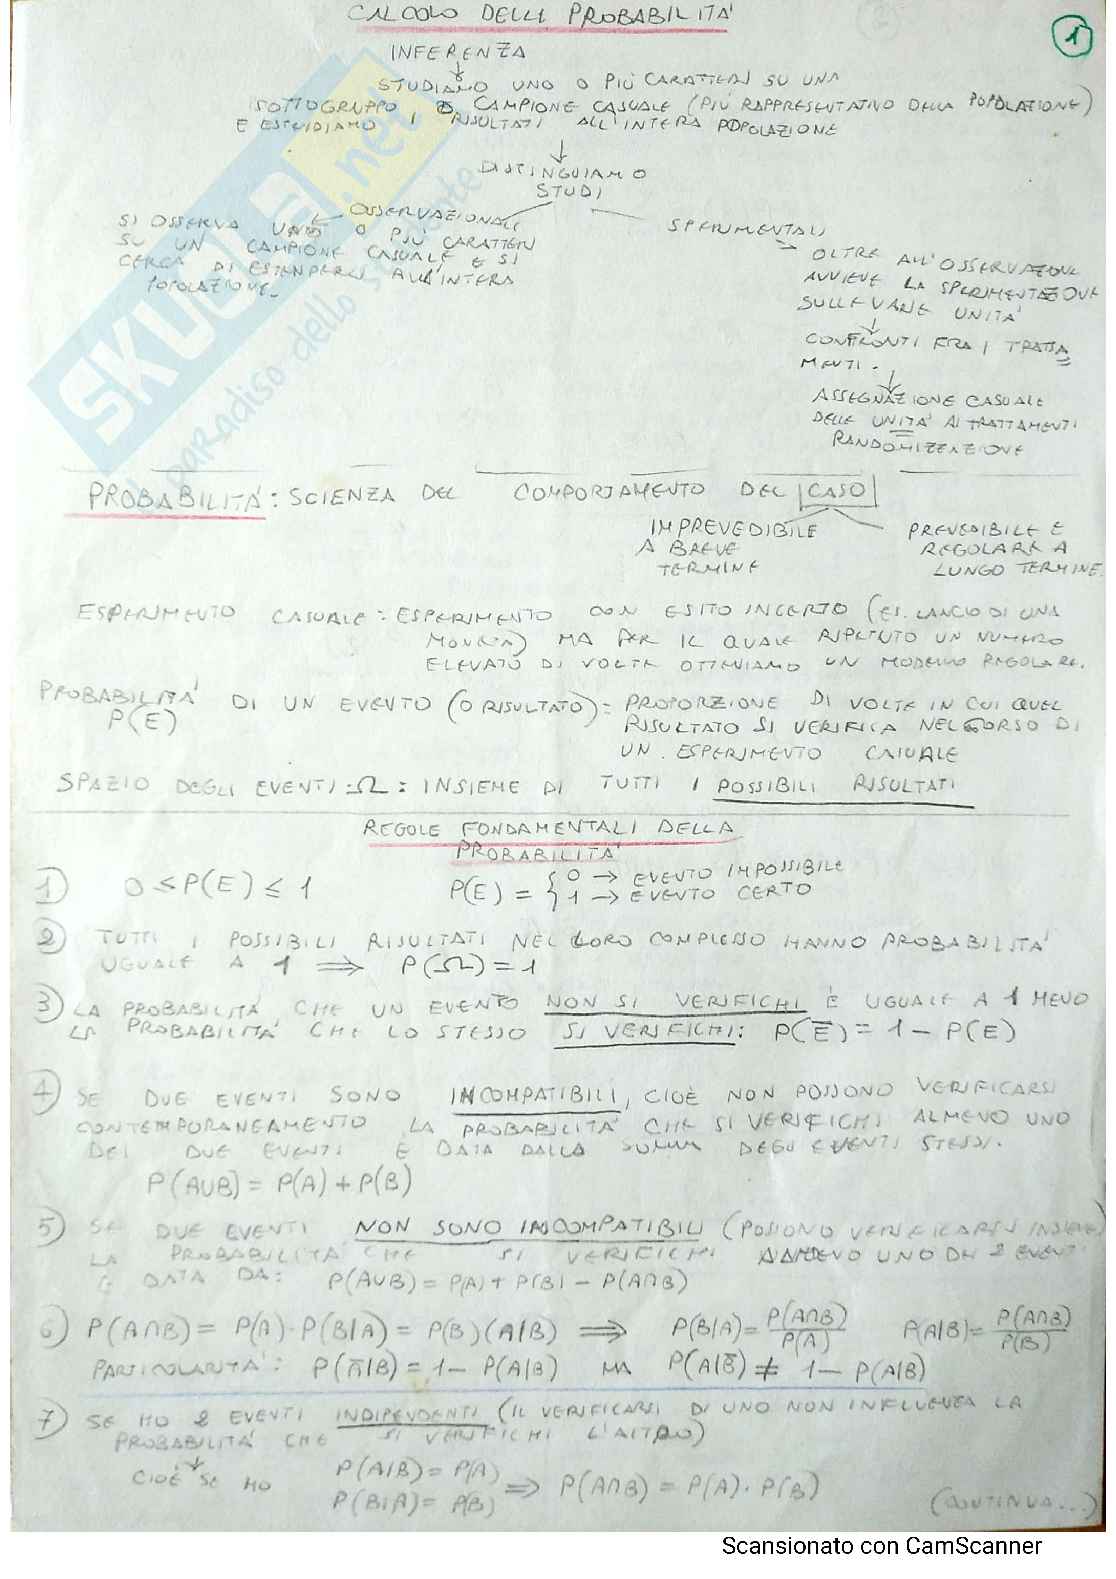 CALCOLO DELLE PROBABILITA'
1
INFERENZA
STUDIAMO UNO O PIÙ CARATTERI SU UNA
SOTTOGRUPPO O CAMPIONE CASUALE (PIÙ RAPPRESENTATIVO DELLA POPOLAZIONE)
E ESTENDIAMO I RISULTATI ALL'INTERA POPOLAZIONE
DISTINGUIAMO
STUDI
OSSERVAZIONALI
SI OSSERVA UNO O PIÙ CARATTERI
SU UN CAMPIONE CASUALE E SI
CERCA DI ESTENDERLI ALL'INTERA
POPOLAZIONE.
SPERIMENTALI
OLTRE ALL'OSSERVAZIONE
AVVIENE LA SPERIMENTAZIONE
SULLE VARIE UNITA'
CONFRONTI FRA I TRATTA
MENTI.
ASSEGNAZIONE CASUALE
DELLE UNITA' AI TRATTAMENTI
RANDOMIZZAZIONE
SKUOLA.net
il paradiso dello studente
PROBABILITA': SCIENZA DEL COMPORTAMENTO DEL CASO
IMPREVEDIBILE
A BREVE
TERMINE
PREVEDIBILE E
REGOLARE A
LUNGO TERMINE.
ESPERIMENTO CASUALE: ESPERIMENTO CON ESITO INCERTO (ES. LANCIO DI UNA
MONETA) MA PER IL QUALE RIPETUTO UN NUMERO
ELEVATO DI VOLTE OTTENIAMO UN MODELLO REGOLARE.
PROBABILITA' DI UN EVENTO (O RISULTATO) = PROPORZIONE DI VOLTE IN CUI QUEL
P(E) RISULTATO SI VERIFICA NEL CORSO DI
UN ESPERIMENTO CASUALE
SPAZIO DEGLI EVENTI: Ω: INSIEME DI TUTTI I POSSIBILI RISULTATI
REGOLE FONDAMENTALI DELLA
PROBABILITA'
1) 0 ≤ P(E) ≤ 1 P(E) = { 0 → EVENTO IMPOSSIBILE
1 → EVENTO CERTO
2) TUTTI I POSSIBILI RISULTATI NEL LORO COMPLESSO HANNO PROBABILITA'
UGUALE A 1 ⟹ P(Ω) = 1
3) LA PROBABILITA' CHE UN EVENTO NON SI VERIFICHI È UGUALE A 1 MENO
LA PROBABILITA' CHE LO STESSO SI VERIFICHI: P(E̅) = 1 - P(E)
4) SE DUE EVENTI SONO INCOMPATIBILI, CIOÈ NON POSSONO VERIFICARSI
CONTEMPORANEAMENTO LA PROBABILITA' CHE SI VERIFICHI ALMENO UNO
DEI DUE EVENTI È DATA DALLA SOMMA DEGLI EVENTI STESSI.
P(A∪B) = P(A) + P(B)
5) SE DUE EVENTI NON SONO INCOMPATIBILI (POSSONO VERIFICARSI INSIEME)
LA PROBABILITA' CHE SI VERIFICHI ALMENO UNO DEI 2 EVENTI
È DATA DA: P(A∪B) = P(A) + P(B) - P(A∩B)
6) P(A∩B) = P(A)·P(B|A) = P(B)(A|B) ⟹ P(B|A) = P(A∩B)/P(A) P(A|B) = P(A∩B)/P(B)
PARTICOLARITA': P(A̅|B) = 1 - P(A|B) MA P(A|B̅) ≠ 1 - P(A|B)
7) SE HO 2 EVENTI INDIPENDENTI (IL VERIFICARSI DI UNO NON INFLUENZA LA
PROBABILITA' CHE SI VERIFICHI L'ALTRO)
CIOÈ SE HO P(A|B) = P(A)
P(B|A) = P(B) ⟹ P(A∩B) = P(A)·P(B)
(CONTINUA...)
Scansionato con CamScanner